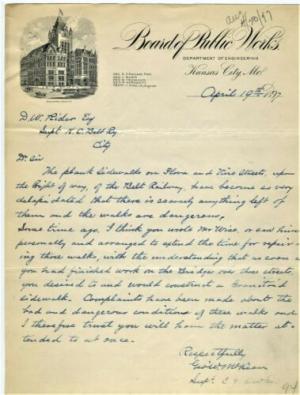 ans 4/20/97
Board of Public Works.
DEPARTMENT OF ENGINEERING
Kansas City, Mo.
April 19th 1897.
D. W. Rider Esq
Supt K. C. Belt Ry
City
Dr Sir
The plank sidewalks on Flora and Streets,
upon the Right of way, of the Belt Railway, have become so very
delapidated that there is scarcely anything left of
them and the walks are dangerous.
Some time ago, I think you wrote Mr Wise, or saw him
personally and arranged to extend the time for repair
ing these walks, with the understanding that as soon as
you had finished work on the Bridges over these streets,
you desired to and would construct a
sidewalk. Complaints have been made about the
bad and dangerous conditions of these walks and
I therefore trust you will have the matter at-
tended to at once.
Respectfully
Supt
94